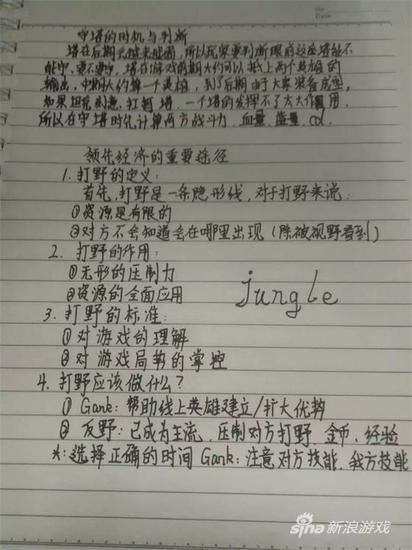 守塔的时机与判断
塔在后期无能来脆弱,所以玩家要判断眼前这座塔能不
能守,要不要守,塔在游戏前期大约可以抵上两个英雄的
输出,中期大约算一个英雄,到了后期由于大家装备成型,
如果坦克刻意扛着塔,一个塔的发挥不了太大作用,
所以在守塔时先计算两方战斗力,血量,蓝量,cd.
领先经济的重要途径
1. 打野的定义:
首先,打野是一条隐形线,对于打野来说:
①资源是有限的
②对方不会知道会在哪里出现(除被视野看到)
2. 打野的作用:
①无形的压制力
②资源的全面应用
jungle
3. 打野的标准:
①对游戏的理解
②对游戏局势的掌控
4. 打野应该做什么?
① Gank: 帮助线上英雄建立/扩大优势
② 反野: 已成为主流,压制对方打野,金币,经验
*: 选择正确的时间 Gank: 注意对方技能,我方技能
sina 新浪游戏